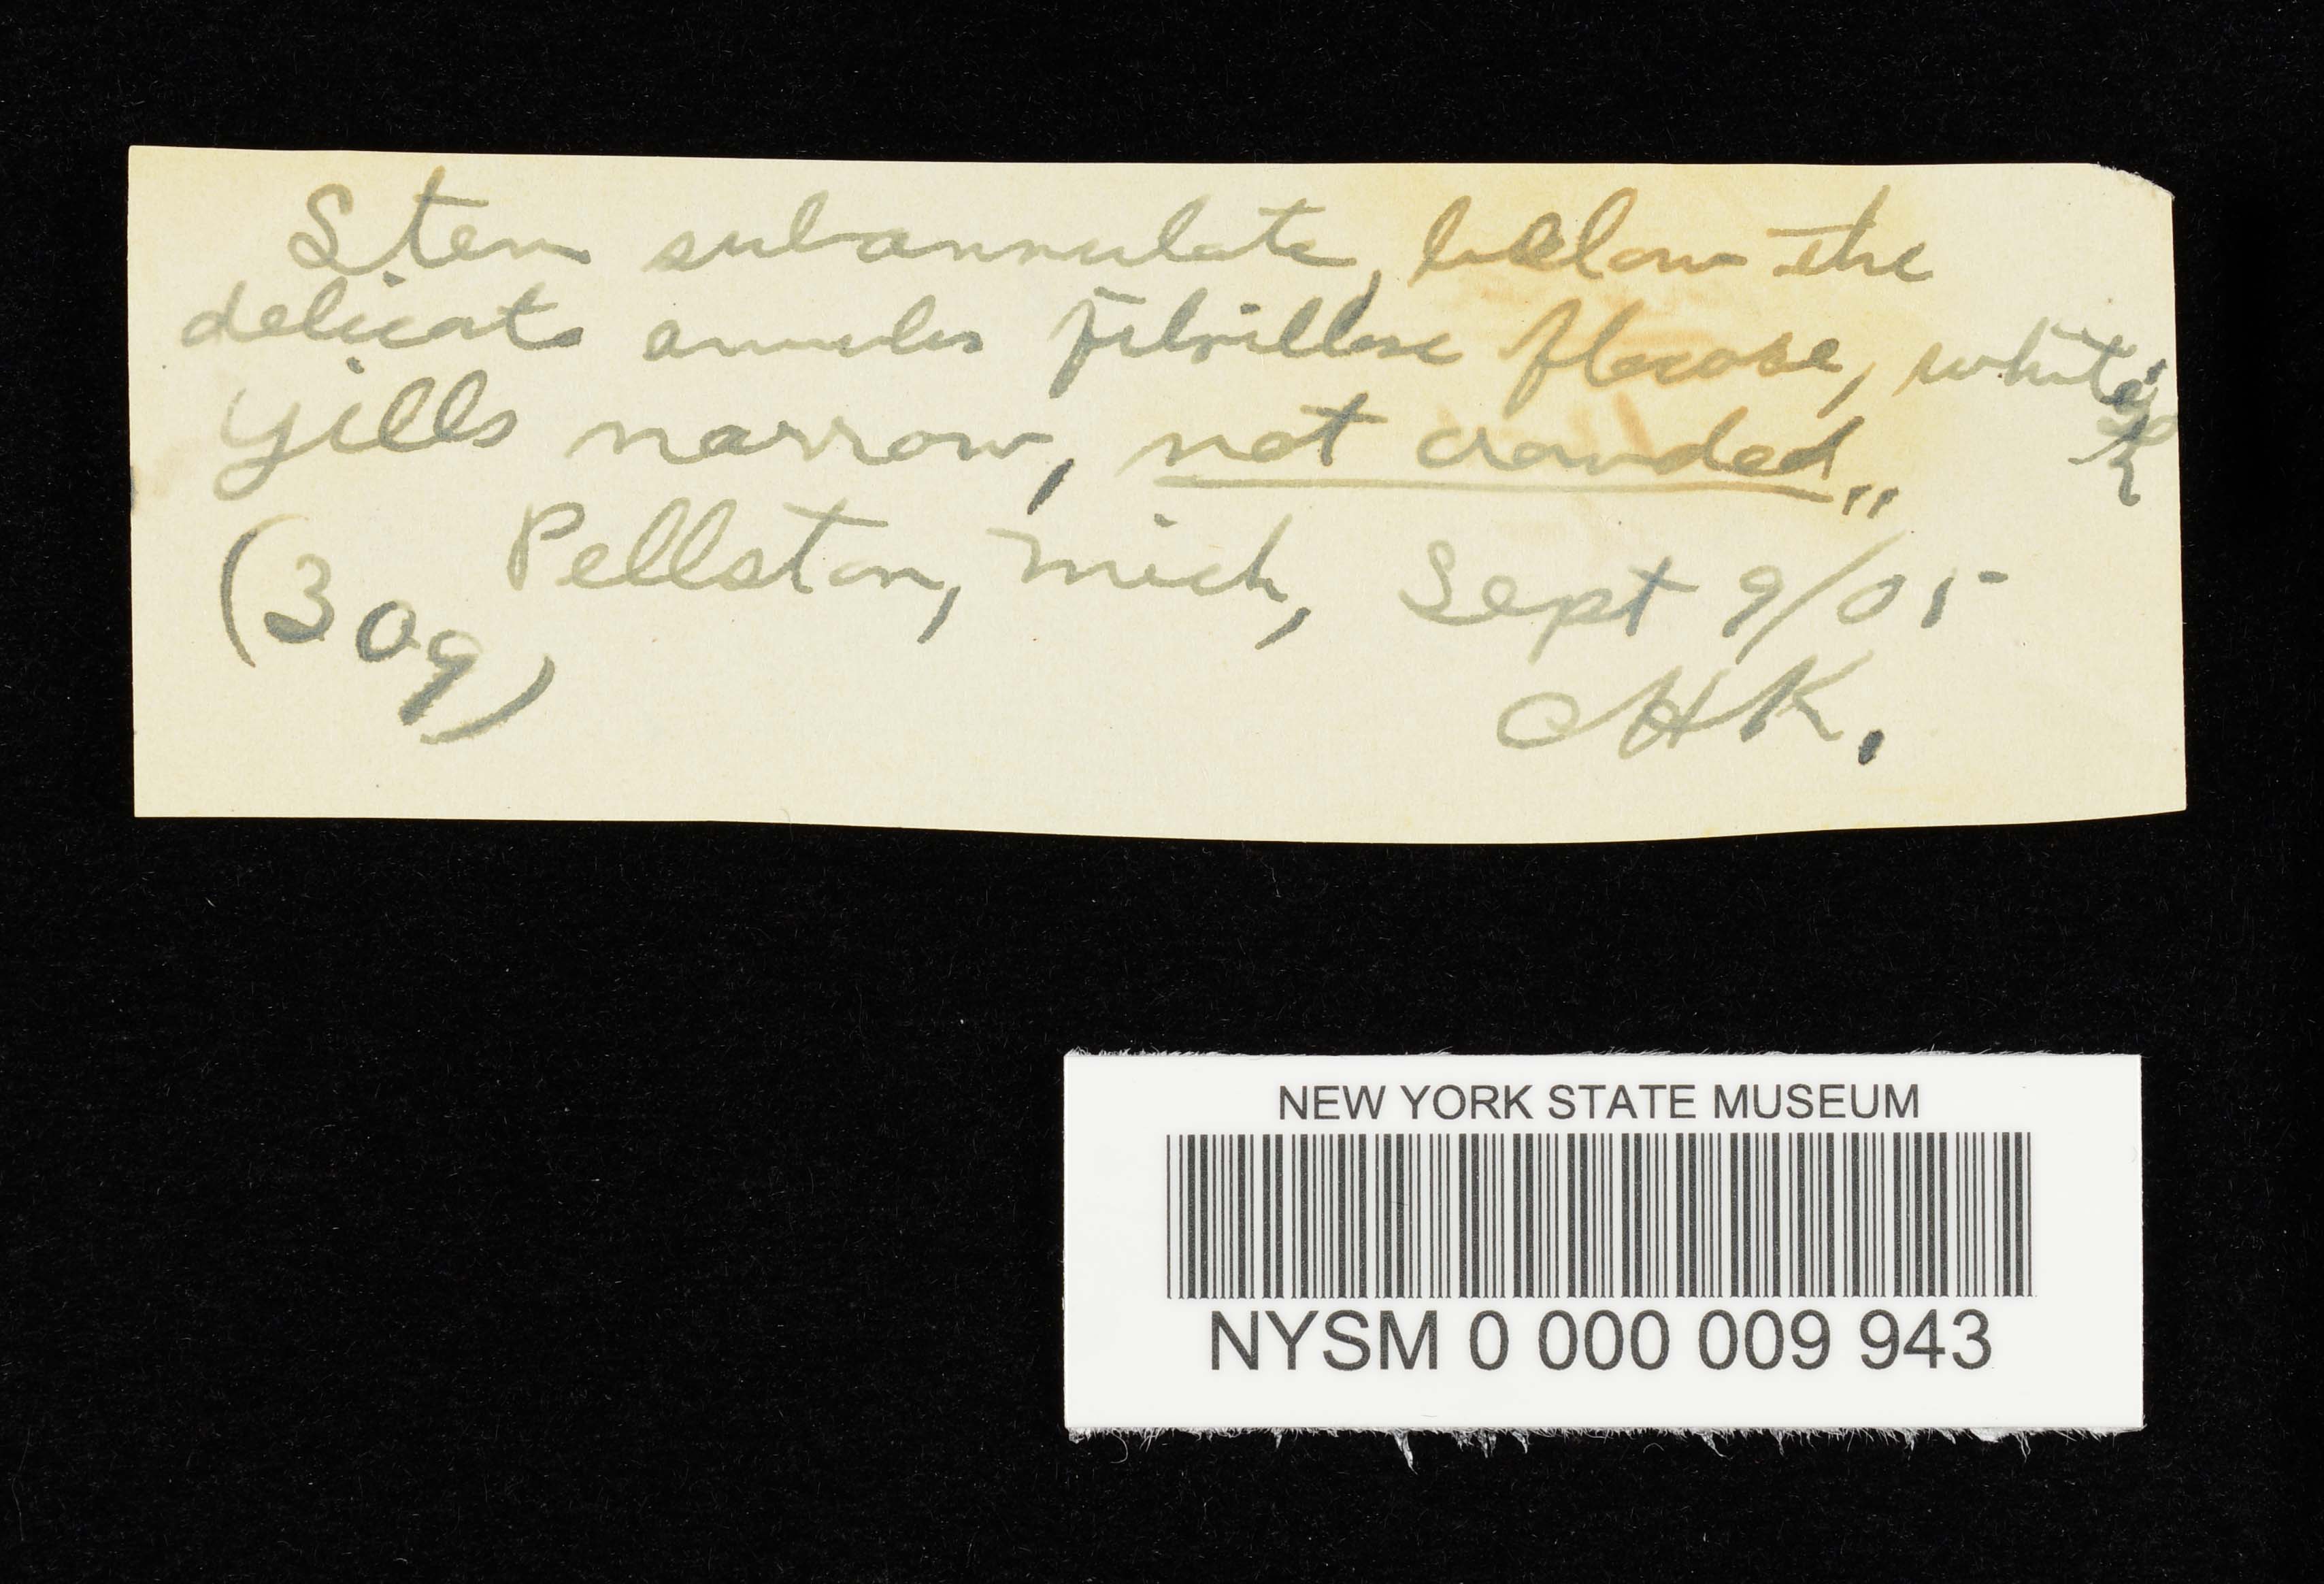 Stem subannulate, below the
delicate annulus fibrillose floccose, white,
Gills narrow, not crowded,,
Pellston, Mich, Sept 9/05
(309)
CHK.
NEW YORK STATE MUSEUM
NYSM 0 000 009 943